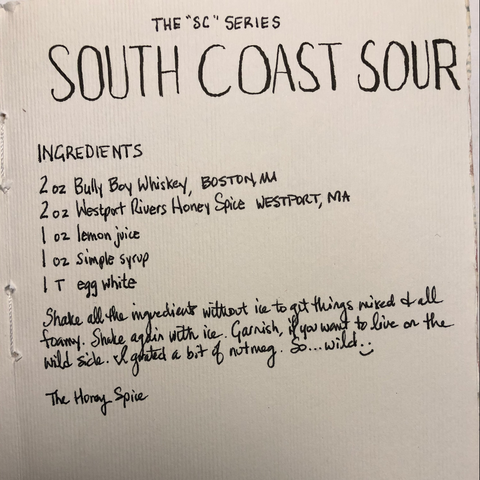 THE "SC" SERIES
SOUTH COAST SOUR
INGREDIENTS
2 oz Bully Boy Whiskey, BOSTON, MA
2 oz Westport Rivers Honey Spice WESTPORT, MA
1 oz lemon juice
1 oz Simple syrup
1 T egg white
Shake all the ingredients without ice to get things mixed & all
foamy. Shake again with ice. Garnish, if you want to live on the
wild side. I grated a bit of nutmeg. So...wild :)
The Honey Spice